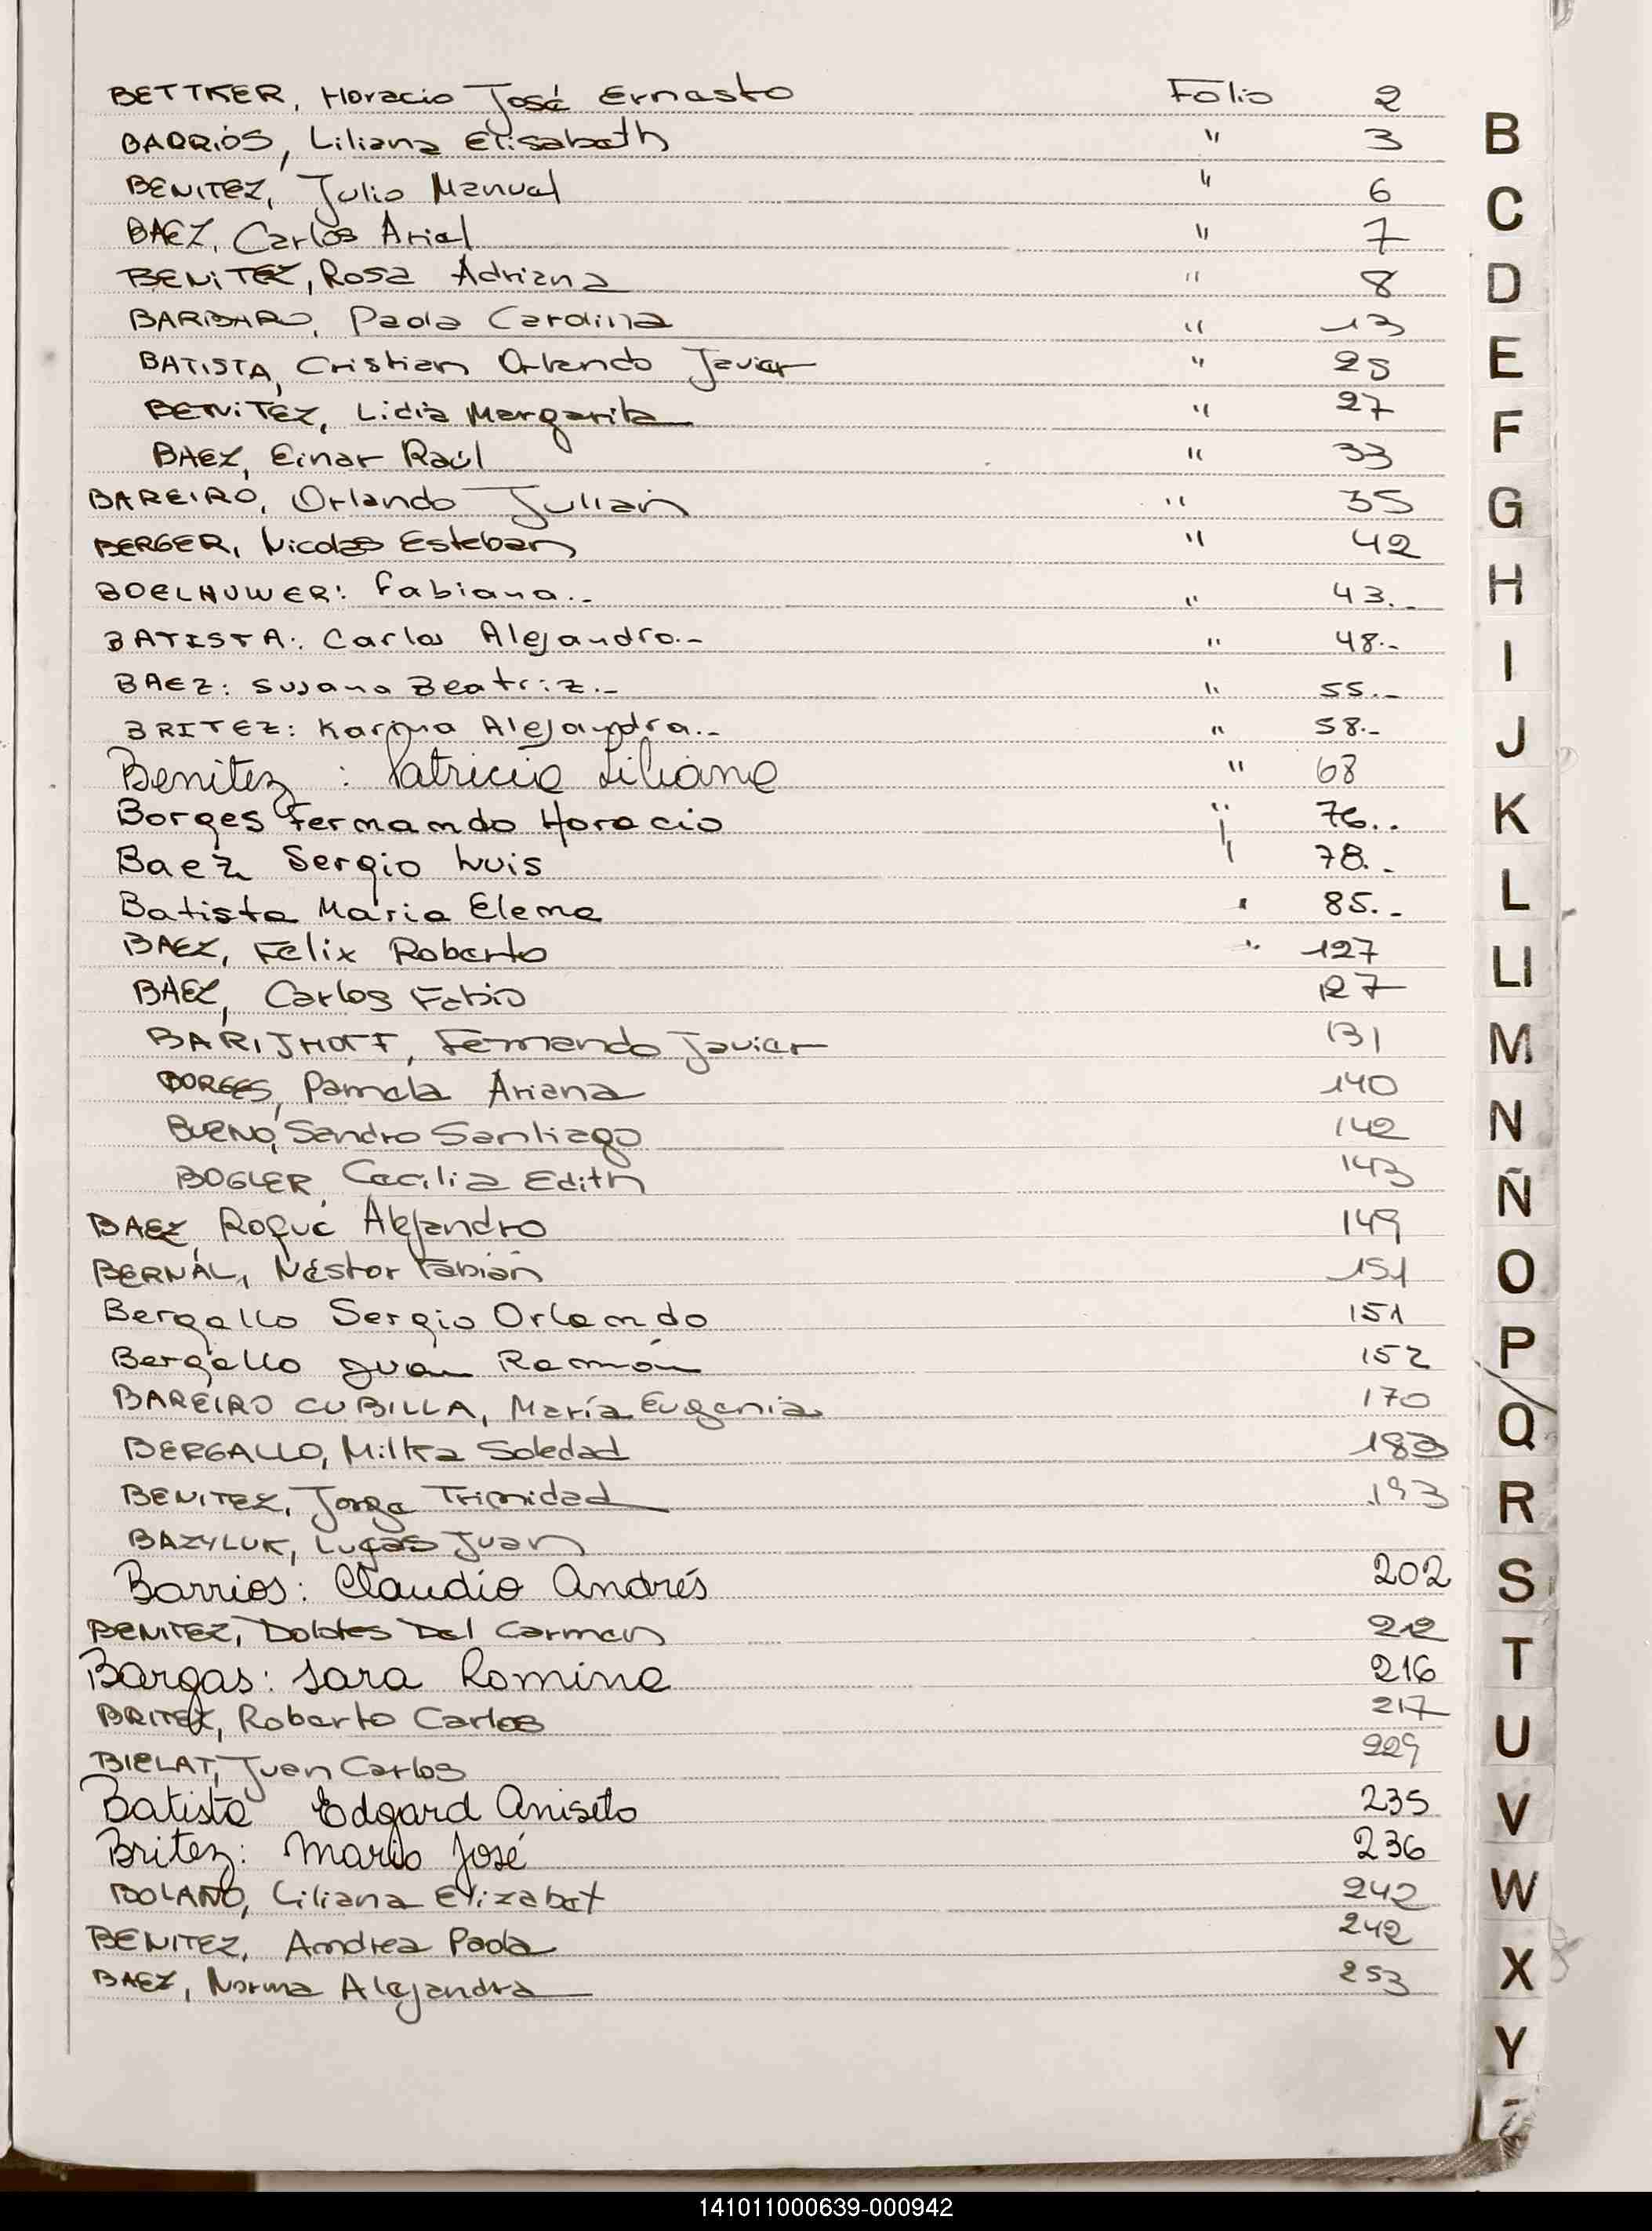 BETTKER, Horacio José Ernesto Folio 2
BARRIOS, Liliana Elisabeth " 3
BENITEZ, Julio Manuel " 6
BAEZ, Carlos Ariel " 7
BENITEZ, Rosa Adriana " 8
BARBARO, Paola Carolina " 13
BATISTA, Cristian Orlando Javier " 25
BENITEZ, Lidia Margarita " 27
BAEZ, Einar Raúl " 33
BAREIRO, Orlando Julian " 35
BERGER, Nicolas Esteban " 42
BOELHUWER: Fabiana.. " 43..
BATISTA: Carlos Alejandro.- " 48.-
BAEZ: Susana Beatriz.- " 55.-
BRITEZ: Karina Alejandra.- " 58.-
Benitez : Patricia Liliana " 68
Borges Fernando Horacio " 76..
Baez Sergio Luis " 78.-
Batista Maria Elena " 85.-
BAEZ, Felix Roberto " 127
BAEZ, Carlos Fabio 127
BARIJHOFF, Fernando Javier 131
BORGES, Pamela Ariana 140
BUENO, Sandro Santiago 142
BOGLER, Cecilia Edith 143
BAEZ, Roque Alejandro 149
BERNAL, Néstor Fabián 151
Bergallo Sergio Orlando 151
Bergallo Juan Ramón 152
BAREIRO CUBILLA, María Eugenia 170
BERGALLO, Milka Soledad 183
BENITEZ, Jorge Trinidad 193
BAZYLUK, Lucas Juan
Barrios: Claudio Andrés 202
BENITEZ, Dolores Del Carmen 212
Bargas: Sara Romina 216
BRITEZ, Roberto Carlos 217
BIELAT, Juan Carlos 229
Batista Edgard Aniseto 235
Britez: Mario José 236
BOLAÑO, Liliana Elizabet 242
BENITEZ, Andrea Paola 242
BAEZ, Norma Alejandra 253
B
C
D
E
F
G
H
I
J
K
L
Ll
M
N
Ñ
O
P/Q
R
S
T
U
V
W
X
Y
Z
141011000639-000942